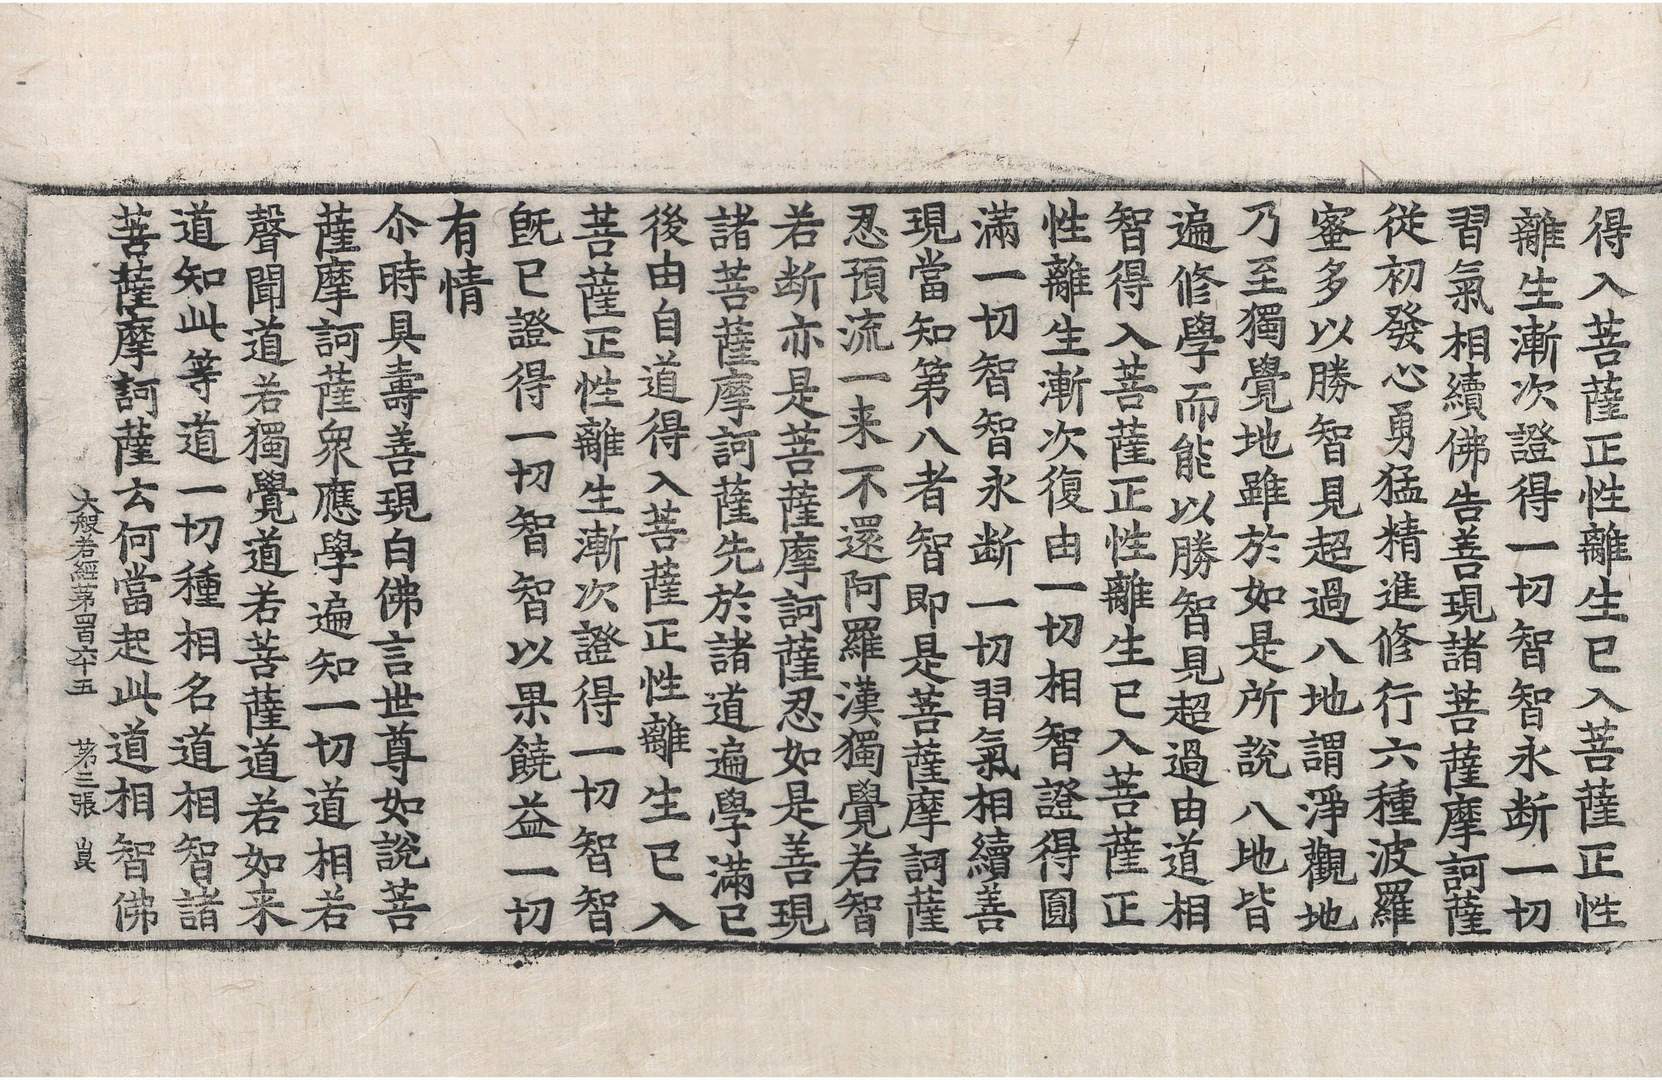 得入菩薩正性離生已入菩薩正性
離生漸次證得一切智智永断一切
習氣相續佛告善現諸菩薩摩訶薩
從初發心勇猛精進修行六種波羅
蜜多以勝智見超過八地謂淨觀地
乃至獨覺地雖於如是所說八地皆
遍修學而能以勝智見超過由道相
智得入菩薩正性離生已入菩薩正
性離生漸次復由一切相智證得圓
滿一切智智永断一切習氣相續善
現當知第八者智即是菩薩摩訶薩
忍預流一来不還阿羅漢獨覺若智
若断亦是菩薩摩訶薩忍如是善現
諸菩薩摩訶薩先於諸道遍學滿已
後由自道得入菩薩正性離生已入
菩薩正性離生漸次證得一切智智
旣已證得一切智智以果饒益一切
有情
尒時具壽善現白佛言世尊如說菩
薩摩訶薩衆應學遍知一切道相若
聲聞道若獨覺道若菩薩道若如来
道知此等道一切種相名道相智諸
菩薩摩訶薩云何當起此道相智佛
大般若經苐四百六十五 苐三張 㒹